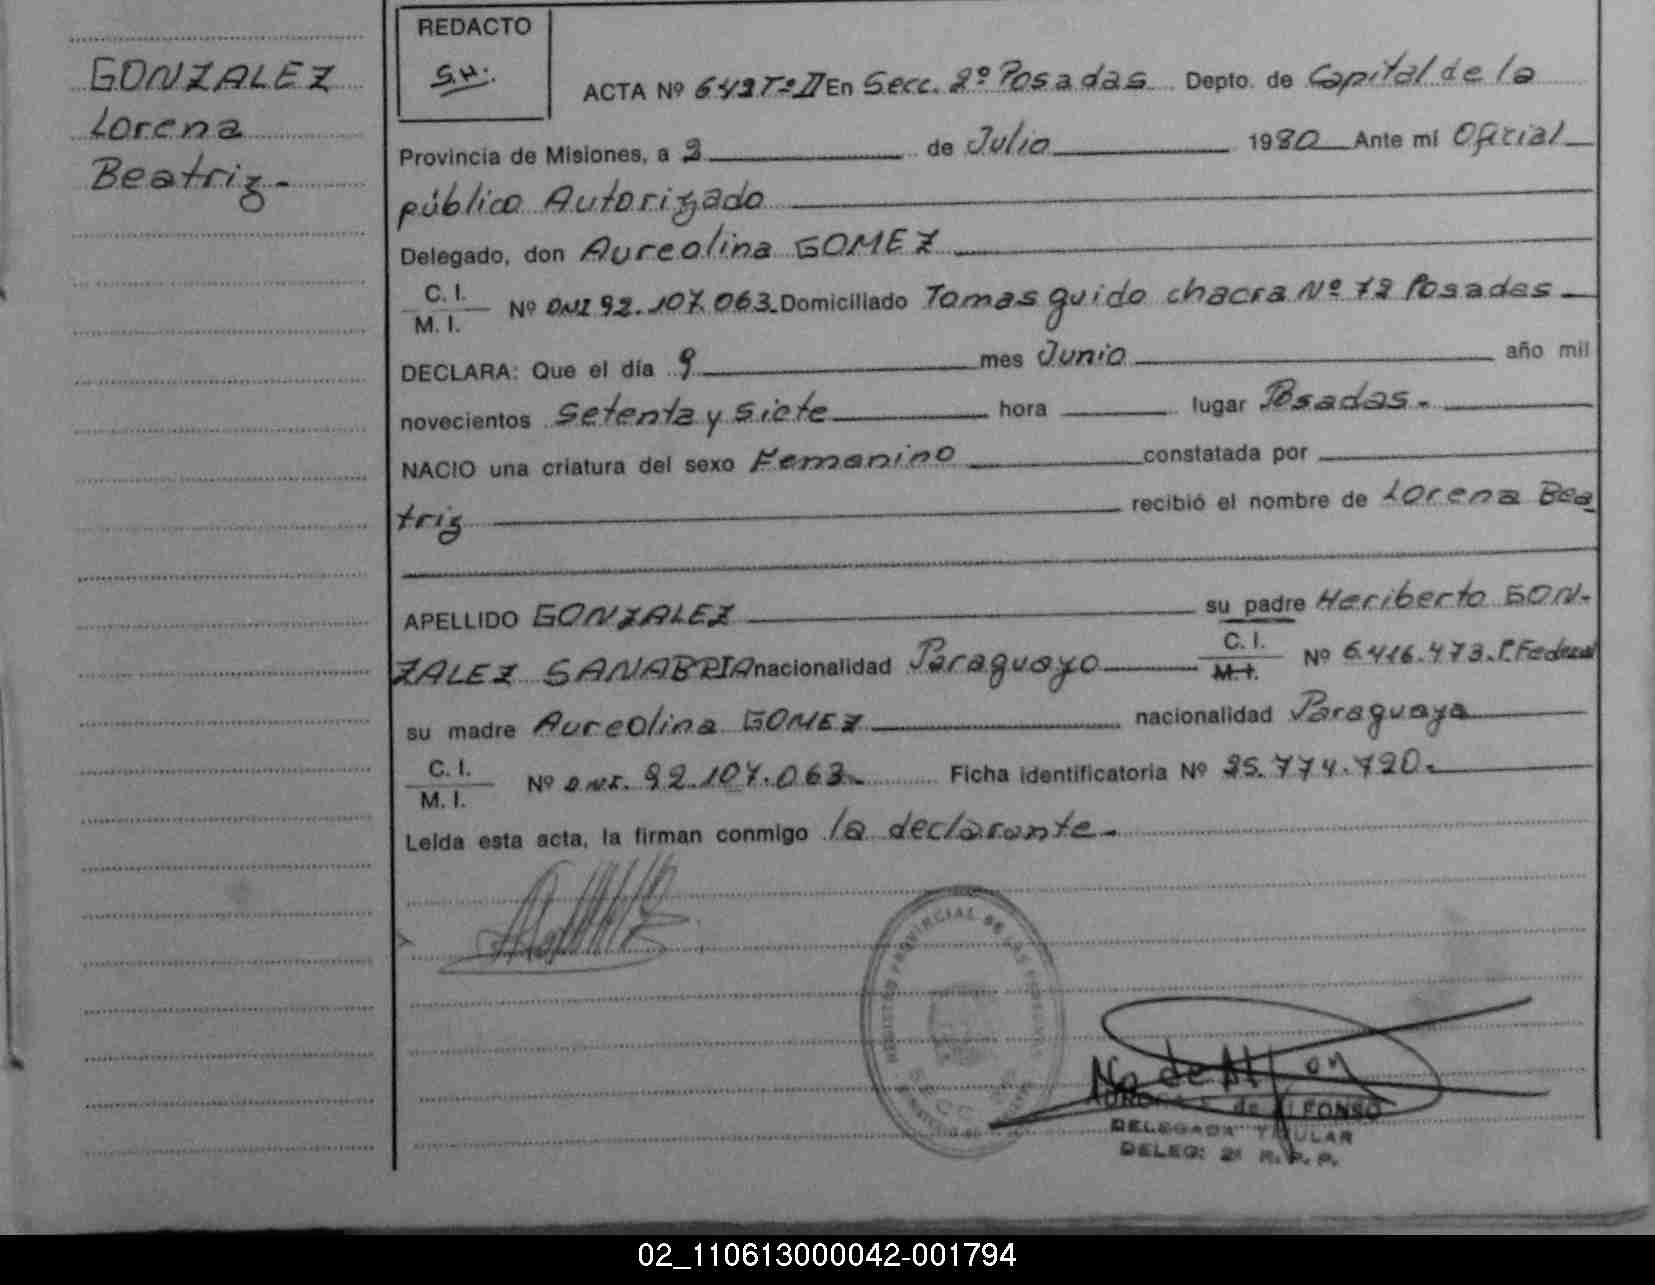 GONZALEZ
Lorena
Beatriz.-
REDACTO
ACTA Nº 642 Tº II En Secc. 2º Posadas Depto. de Capital de la
Provincia de Misiones, a 2 de Julio 1980 Ante mi Oficial
público Autorizado
Delegado, don Aureolina GOMEZ
C. I.
M. I. Nº DNI 92.107.063. Domiciliado Tomas guido chacra Nº 72 Posadas
DECLARA: Que el día 9 mes Junio año mil
novecientos Setenta y Siete hora lugar Posadas.
NACIO una criatura del sexo Femenino constatada por
recibió el nombre de Lorena Bea
triz
APELLIDO GONZALEZ su padre Heriberto GON-
ZALEZ SANABRIA nacionalidad Paraguayo C. I. M. I. Nº 6.416.473. P. Federal
su madre Aureolina GOMEZ nacionalidad Paraguaya
C. I.
M. I. Nº D.N.I. 92.107.063. Ficha identificatoria Nº 25.774.720.
Leída esta acta, la firman conmigo la declarante.
REGISTRO PROVINCIAL DE LAS PERSONAS
SECC.
de ALFONSO
DELEGADA TITULAR
DELEG: 2ª R. P. P.
02_110613000042-001794